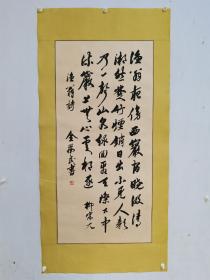 漁翁夜傍西巖宿晓汲清
湘燃楚竹煙銷日出不见人欸
乃一聲山水绿回看天際下中
流巖上無心雲相逐 柳宗元
漁翁詩 金民書